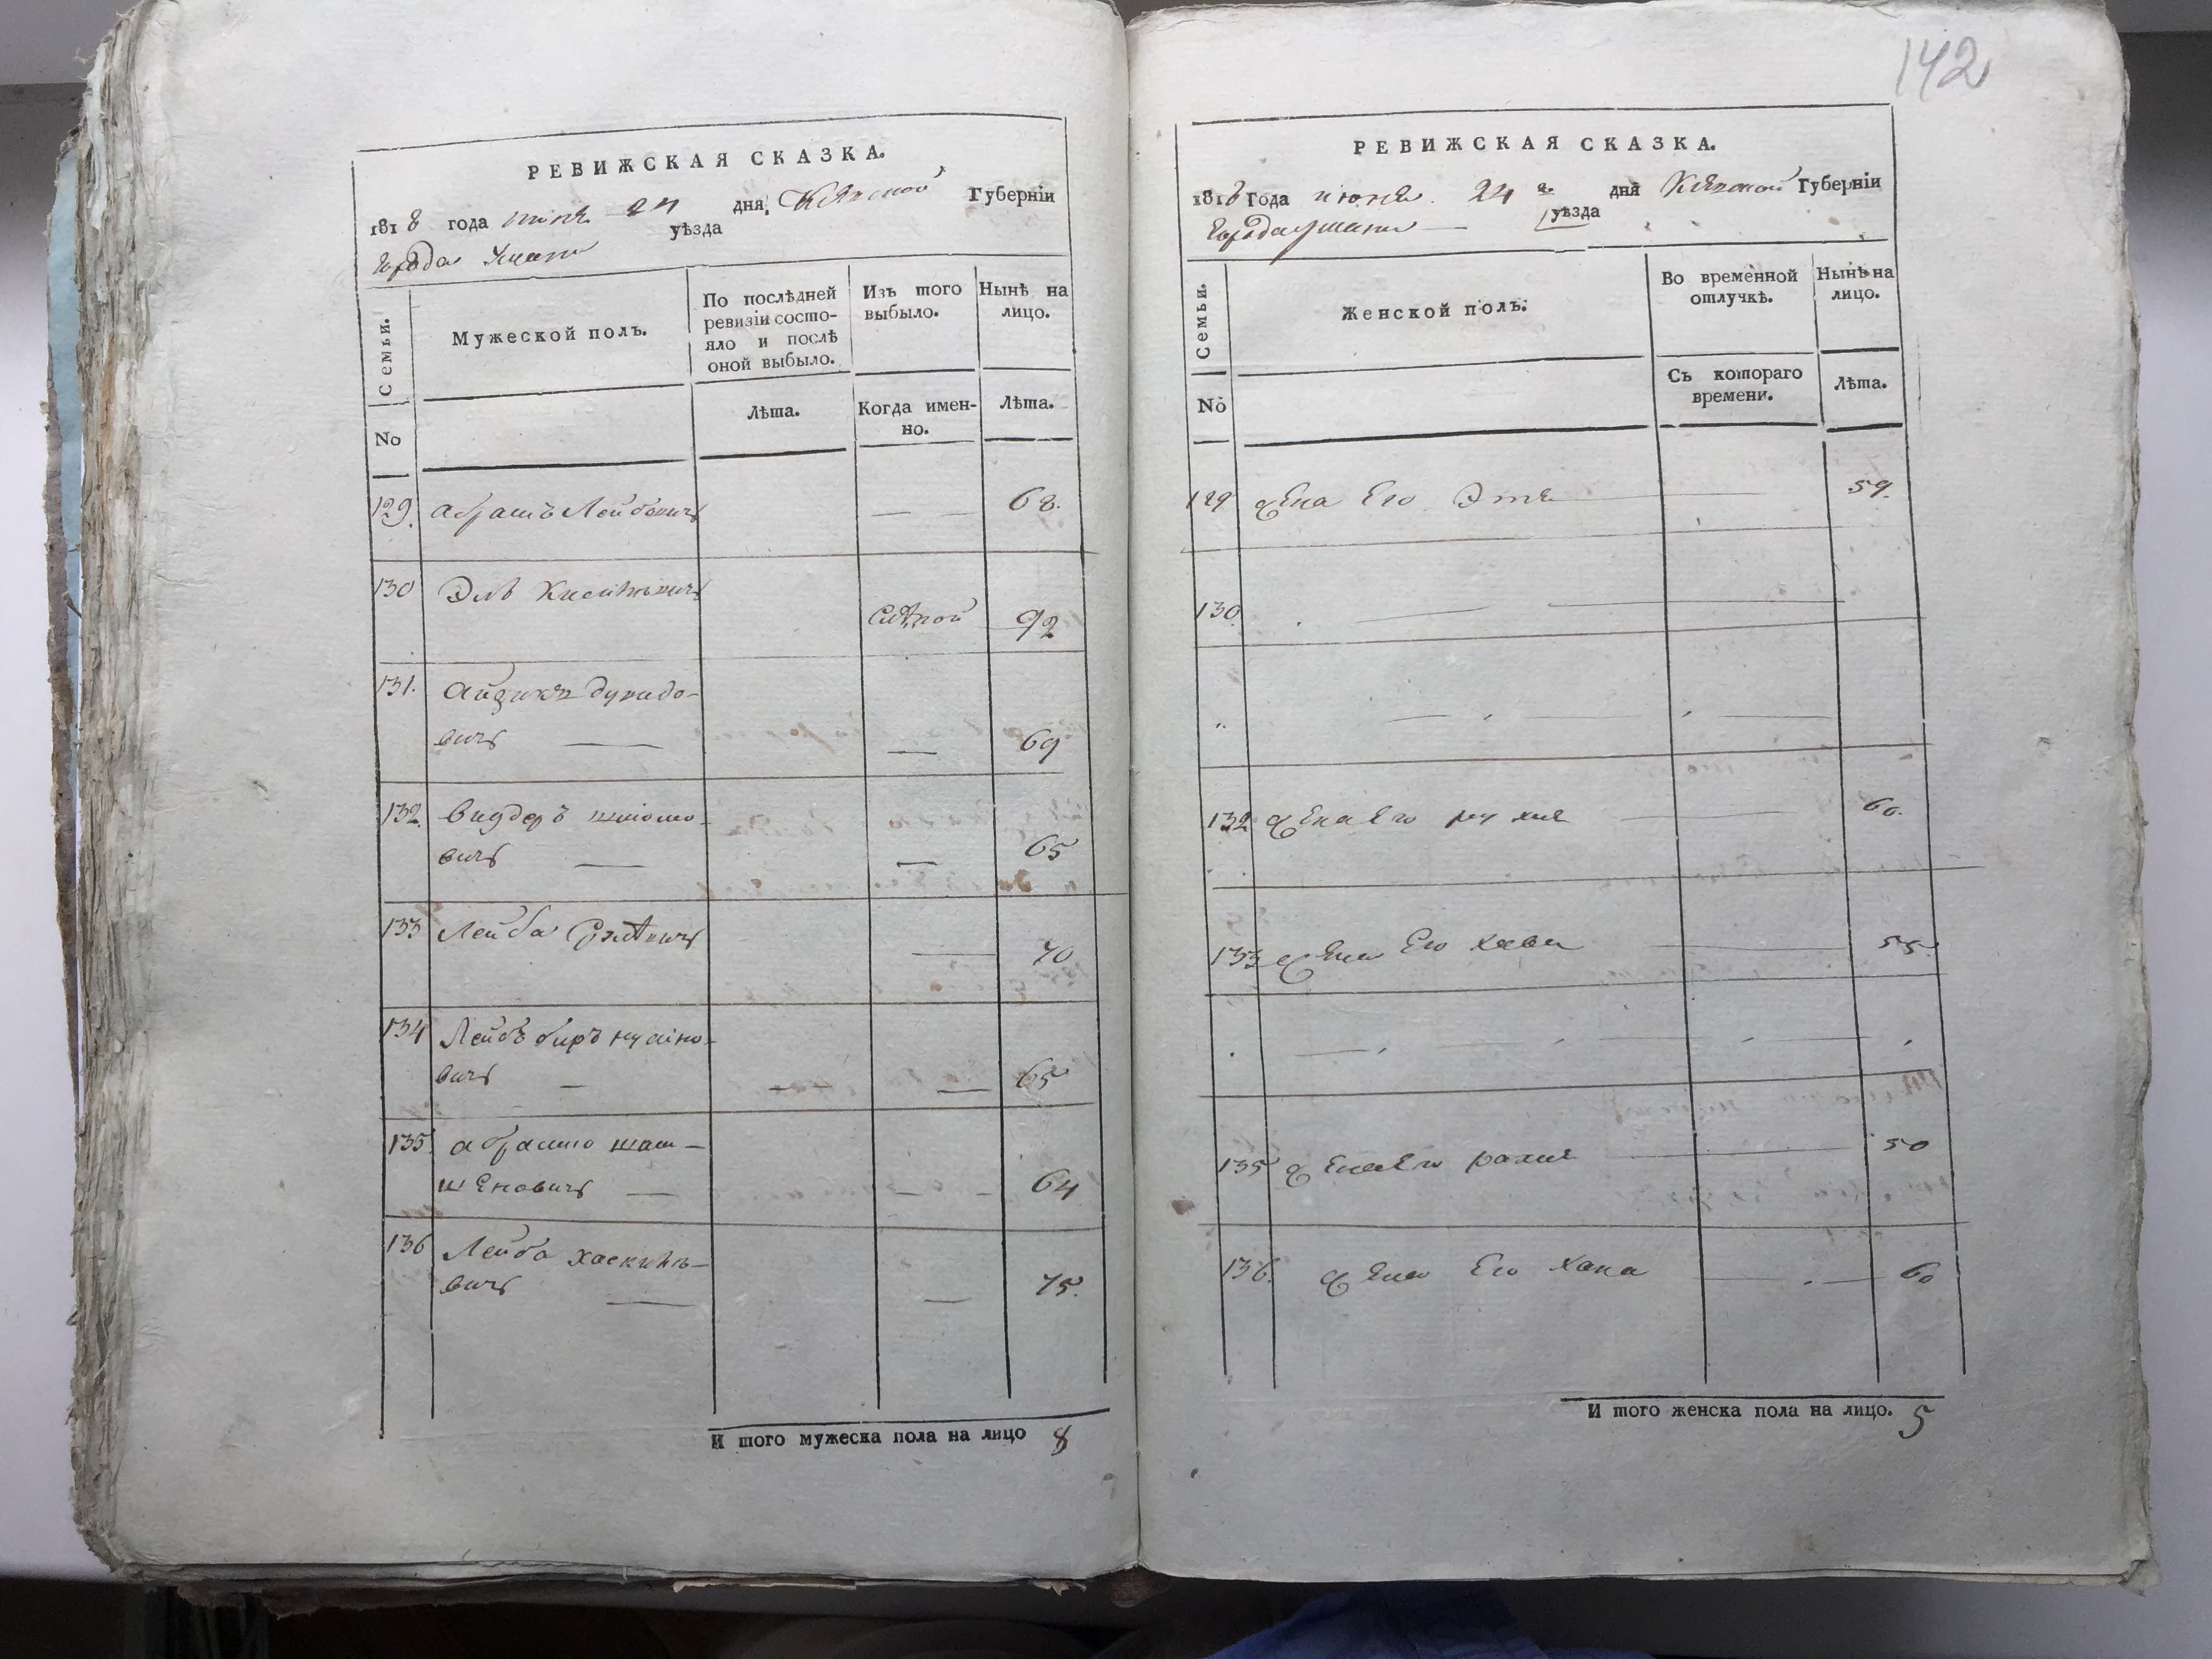 142
РЕВИЖСКАЯ СКАЗКА.
1818 года июня 24 дня, Киевской Губернїи
города Умани уѣзда
Семьи.
Мужеской полъ.
По послѣдней ревизїи состо-
яло и послѣ
оной выбыло.
Изъ того
выбыло.
Нынѣ на
лицо.
No
Лѣта.
Когда имен-
но.
Лѣта.
129. Абрамъ Лейбовичъ — — 68.
130 Эль слѣпой 92
131. Айзикъ
вичъ — — 69
132. шліомо-
вичъ — — 65
133 Лейба — 70
134 Лейбъ
вичъ — — — 65
135. Абрамко
шеновичъ — — 64
136 Лейба
вичъ — — 75.
И того мужеска пола на лицо 8
РЕВИЖСКАЯ СКАЗКА.
1818 Года июня 24 го дня Киевской Губернїи
города Умани — уѣзда
Семьи.
Женской полъ.
Во временной
отлучкѣ.
Нынѣ на
лицо.
No
Съ котораго
времени.
Лѣта.
129 жена Его Этя — 59.
130. — —
132 жена Его рухля — — 60.
133 жена Его хава — 55.
135 жена Его рахля — 50
136. жена Его хана — — 60
И того женска пола на лицо. 5